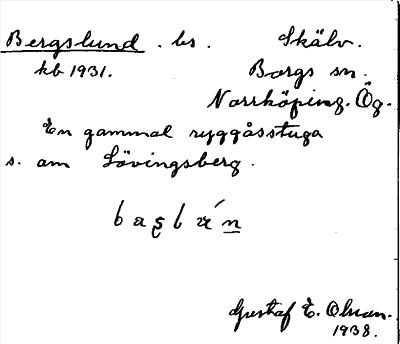 Bergslund . ls . Skälv.
kb 1931. Borgs sn.
Norrköping. Ög.
En gammal ryggåsstuga
s. om Lövingsberg .
Gustaf E. Olsson.
1938.